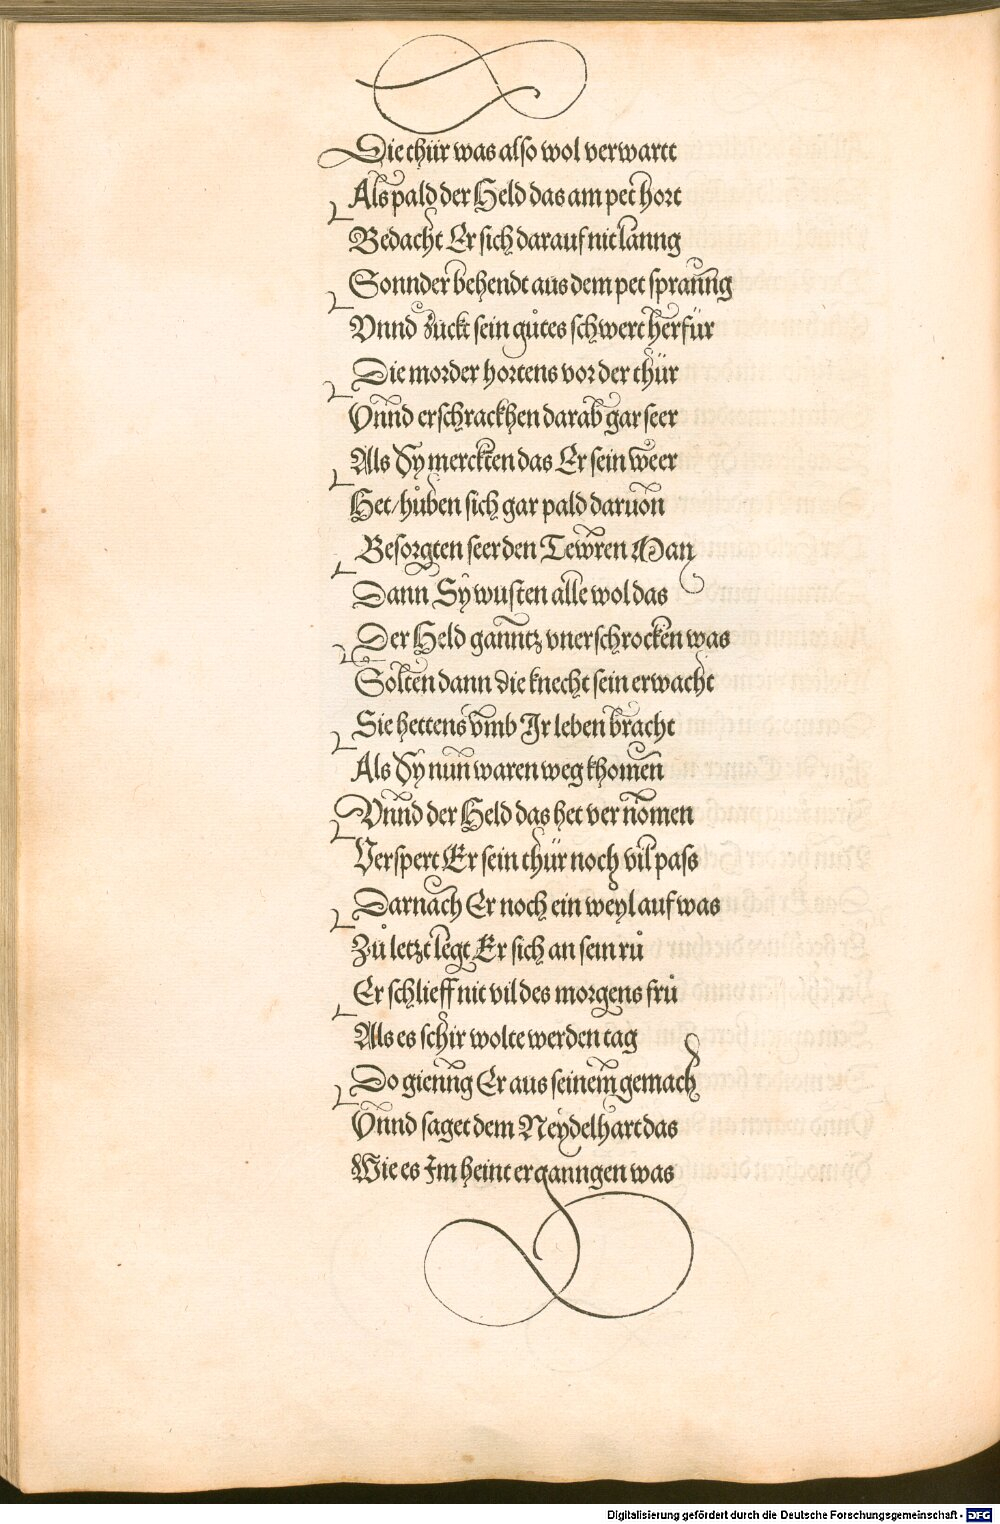 Die thür was also wol verwartt
Als pald der Held das am pet hort
Bedacht Er sich darauf nit lanng
Sonnder behendt aus dem pet spranng
Vnnd zuckt sein gůtes schwert herfür
Die morder hortens vor der thür
Vnnd erschrackhen darab gar seer
Als Sy merckten das Er sein weer
Het/hůben sich gar pald daruon
Besorgten seer den Tewren Man
Dann Sy wusten alle wol das
Der Held ganntz vnerschrocken was
Solten dann die knecht sein erwacht
Sie hettens vmb Ir leben bracht
Als Sy nun waren weg khomen
Vnnd der Held das het vernomen
Verspert Er sein thür noch vil pass
Darnach Er noch ein weyl auf was
Zů letzt legt Er sich an sein rů
Er schlieff nit vil des morgens frů
Als es schir wolte werden tag
Do gienng Er aus seinem gemach
Vnnd saget dem Neydelhart das
Wie es Im heint erganngen was
Digitalisierung gefördert durch die Deutsche Forschungsgemeinschaft - DFG